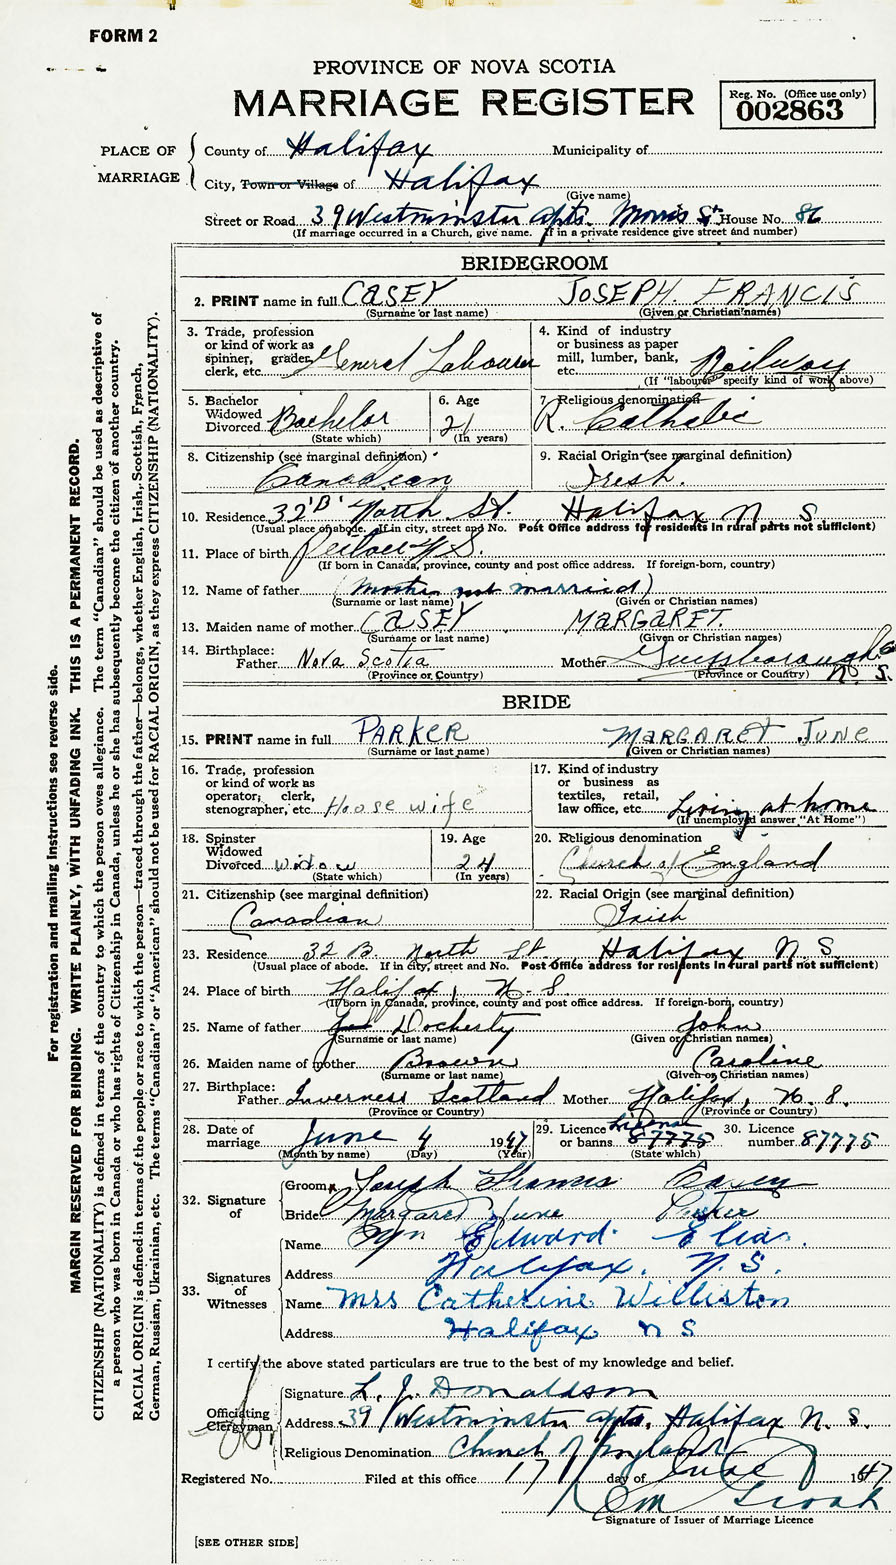 FORM 2
PROVINCE OF NOVA SCOTIA
MARRIAGE REGISTER
Reg. No. (Office use only)
002863
PLACE OF MARRIAGE
County of Halifax Municipality of
City, Town or Village of Halifax
(Give name)
Street or Road 39 Westminster Apts. Morris St. House No. 86
(If marriage occurred in a Church, give name. If in a private residence give street and number)
BRIDEGROOM
2. PRINT name in full CASEY JOSEPH. FRANCIS
(Surname or last name) (Given or Christian names)
3. Trade, profession or kind of work as spinner, grader, clerk, etc. General Labourer
4. Kind of industry or business as paper mill, lumber, bank, etc. Railway
(If "labourer" specify kind of work above)
5. Bachelor Widowed Divorced Bachelor
(State which)
6. Age 21
(In years)
7. Religious denomination R. Catholic
8. Citizenship (see marginal definition) Canadian
9. Racial Origin (see marginal definition) Irish.
10. Residence 32 'B' North St. Halifax N S
(Usual place of abode. If in city, street and No. Post Office address for residents in rural parts not sufficient)
11. Place of birth N.S.
(If born in Canada, province, county and post office address. If foreign-born, country)
12. Name of father (mother not married)
(Surname or last name) (Given or Christian names)
13. Maiden name of mother CASEY MARGARET.
(Surname or last name) (Given or Christian names)
14. Birthplace: Father Nova Scotia Mother Guysborough Co N. S.
(Province or Country) (Province or Country)
BRIDE
15. PRINT name in full PARKER MARGARET JUNE
(Surname or last name) (Given or Christian names)
16. Trade, profession or kind of work as operator, clerk, stenographer, etc. House wife
17. Kind of industry or business as textiles, retail, law office, etc. Living at home
(If unemployed answer "At Home")
18. Spinster Widowed Divorced widow
(State which)
19. Age 24
(In years)
20. Religious denomination Church of England
21. Citizenship (see marginal definition) Canadian
22. Racial Origin (see marginal definition) Irish
23. Residence 32 B North St Halifax N. S
(Usual place of abode. If in city, street and No. Post Office address for residents in rural parts not sufficient)
24. Place of birth Halifax, N. S.
(If born in Canada, province, county and post office address. If foreign-born, country)
25. Name of father Docherty John
(Surname or last name) (Given or Christian names)
26. Maiden name of mother Brown Caroline
(Surname or last name) (Given or Christian names)
27. Birthplace: Father Inverness Scotland Mother Halifax, N. S.
(Province or Country) (Province or Country)
28. Date of marriage June 4 1947
(Month by name) (Day) (Year)
29. Licence or banns license 87775
(State which)
30. Licence number 87775
32. Signature of
Groom Joseph Francis Casey
Bride Margaret June Parker
33. Signatures of Witnesses
Name Edward Elias.
Address Halifax. N. S.
Name Mrs Catherine Williston
Address Halifax N S
I certify the above stated particulars are true to the best of my knowledge and belief.
Officiating Clergyman
Signature L. J. Donaldson
Address 39 Westminster Apts. Halifax N. S.
Religious Denomination Church of England
Registered No. Filed at this office 17 day of June 1947
Signature of Issuer of Marriage Licence
[SEE OTHER SIDE]
For registration and mailing instructions see reverse side.
MARGIN RESERVED FOR BINDING. WRITE PLAINLY, WITH UNFADING INK. THIS IS A PERMANENT RECORD.
CITIZENSHIP (NATIONALITY) is defined in terms of the country to which the person owes allegiance. The term "Canadian" should be used as descriptive of
a person who was born in Canada or who has rights of Citizenship in Canada, unless he or she has subsequently become the citizen of another country.
RACIAL ORIGIN is defined in terms of the people or race to which the person—traced through the father—belongs, whether English, Irish, Scottish, French,
German, Russian, Ukrainian, etc. The terms "Canadian" or "American" should not be used for RACIAL ORIGIN, as they express CITIZENSHIP (NATIONALITY).